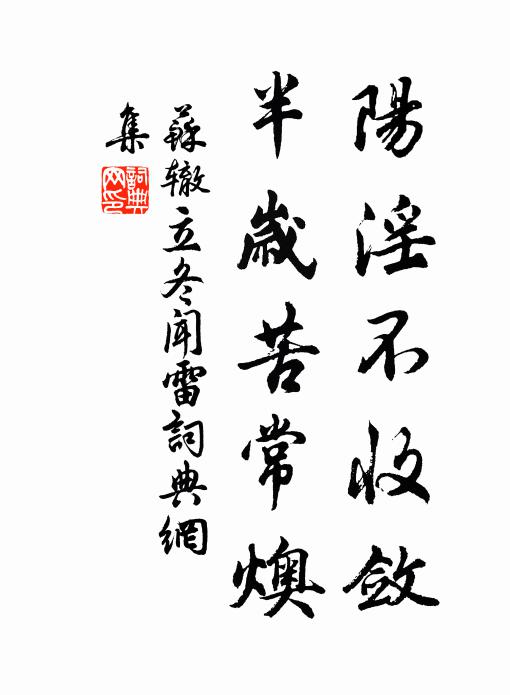 陽淫不收斂
半歲苦常燠
蘇轍立冬聞雷詞典網
集
詞典
网印